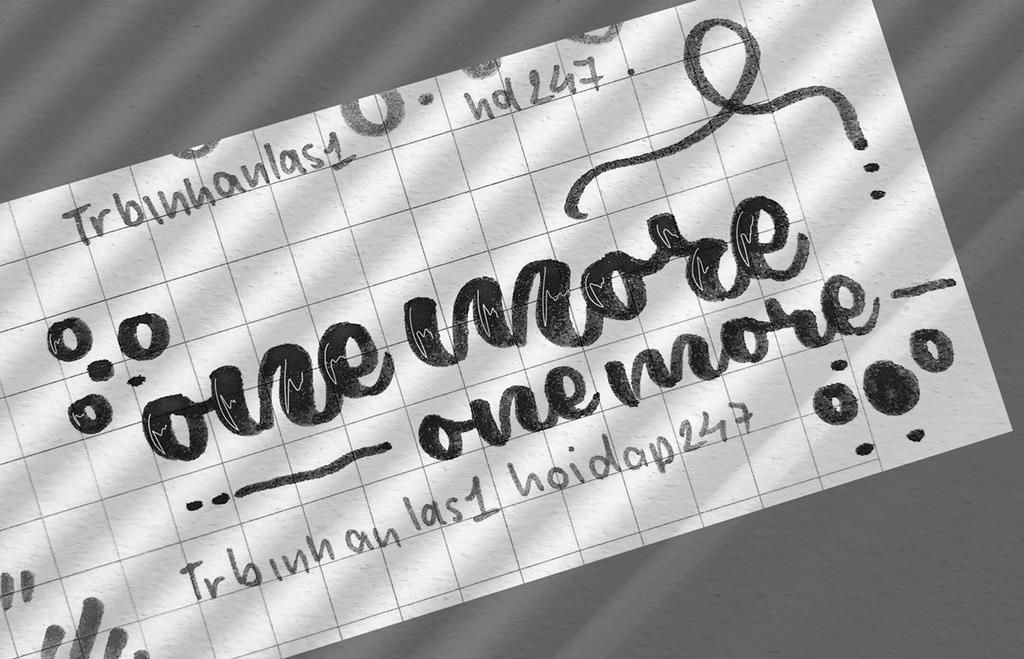 Trbinhanlas1 hd247
one more
one more
Trbinhanlas1 hoidap247